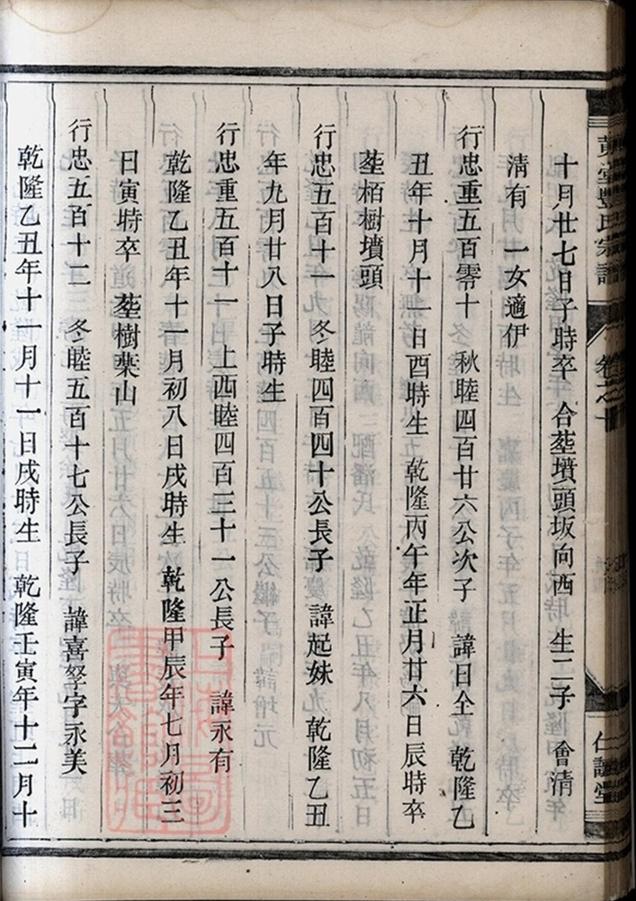 十月廿七日子時卒 合塟墳頭坂向西 生二子 會清
清有 一女適伊
行忠重五百零十 秋睦四百廿六公次子 諱日全 乾隆乙
丑年十月十一日酉時生 乾隆丙午年正月廿六日辰時卒
塟栢樹墳頭
行忠五百十一 冬睦四百四十公長子 諱起妹 乾隆乙丑
年九月廿八日子時生
行忠重五百十一 上西睦四百三十一公長子 諱永有
乾隆乙丑年十一月初八日戌時生 乾隆甲辰年七月初三
日寅時卒 塟樹菜山
行忠五百十二 冬睦五百十七公長子 諱喜孥字永美
乾隆乙丑年十一月十一日戌時生 乾隆壬寅年十二月十
氏宗譜
卷之十
堂